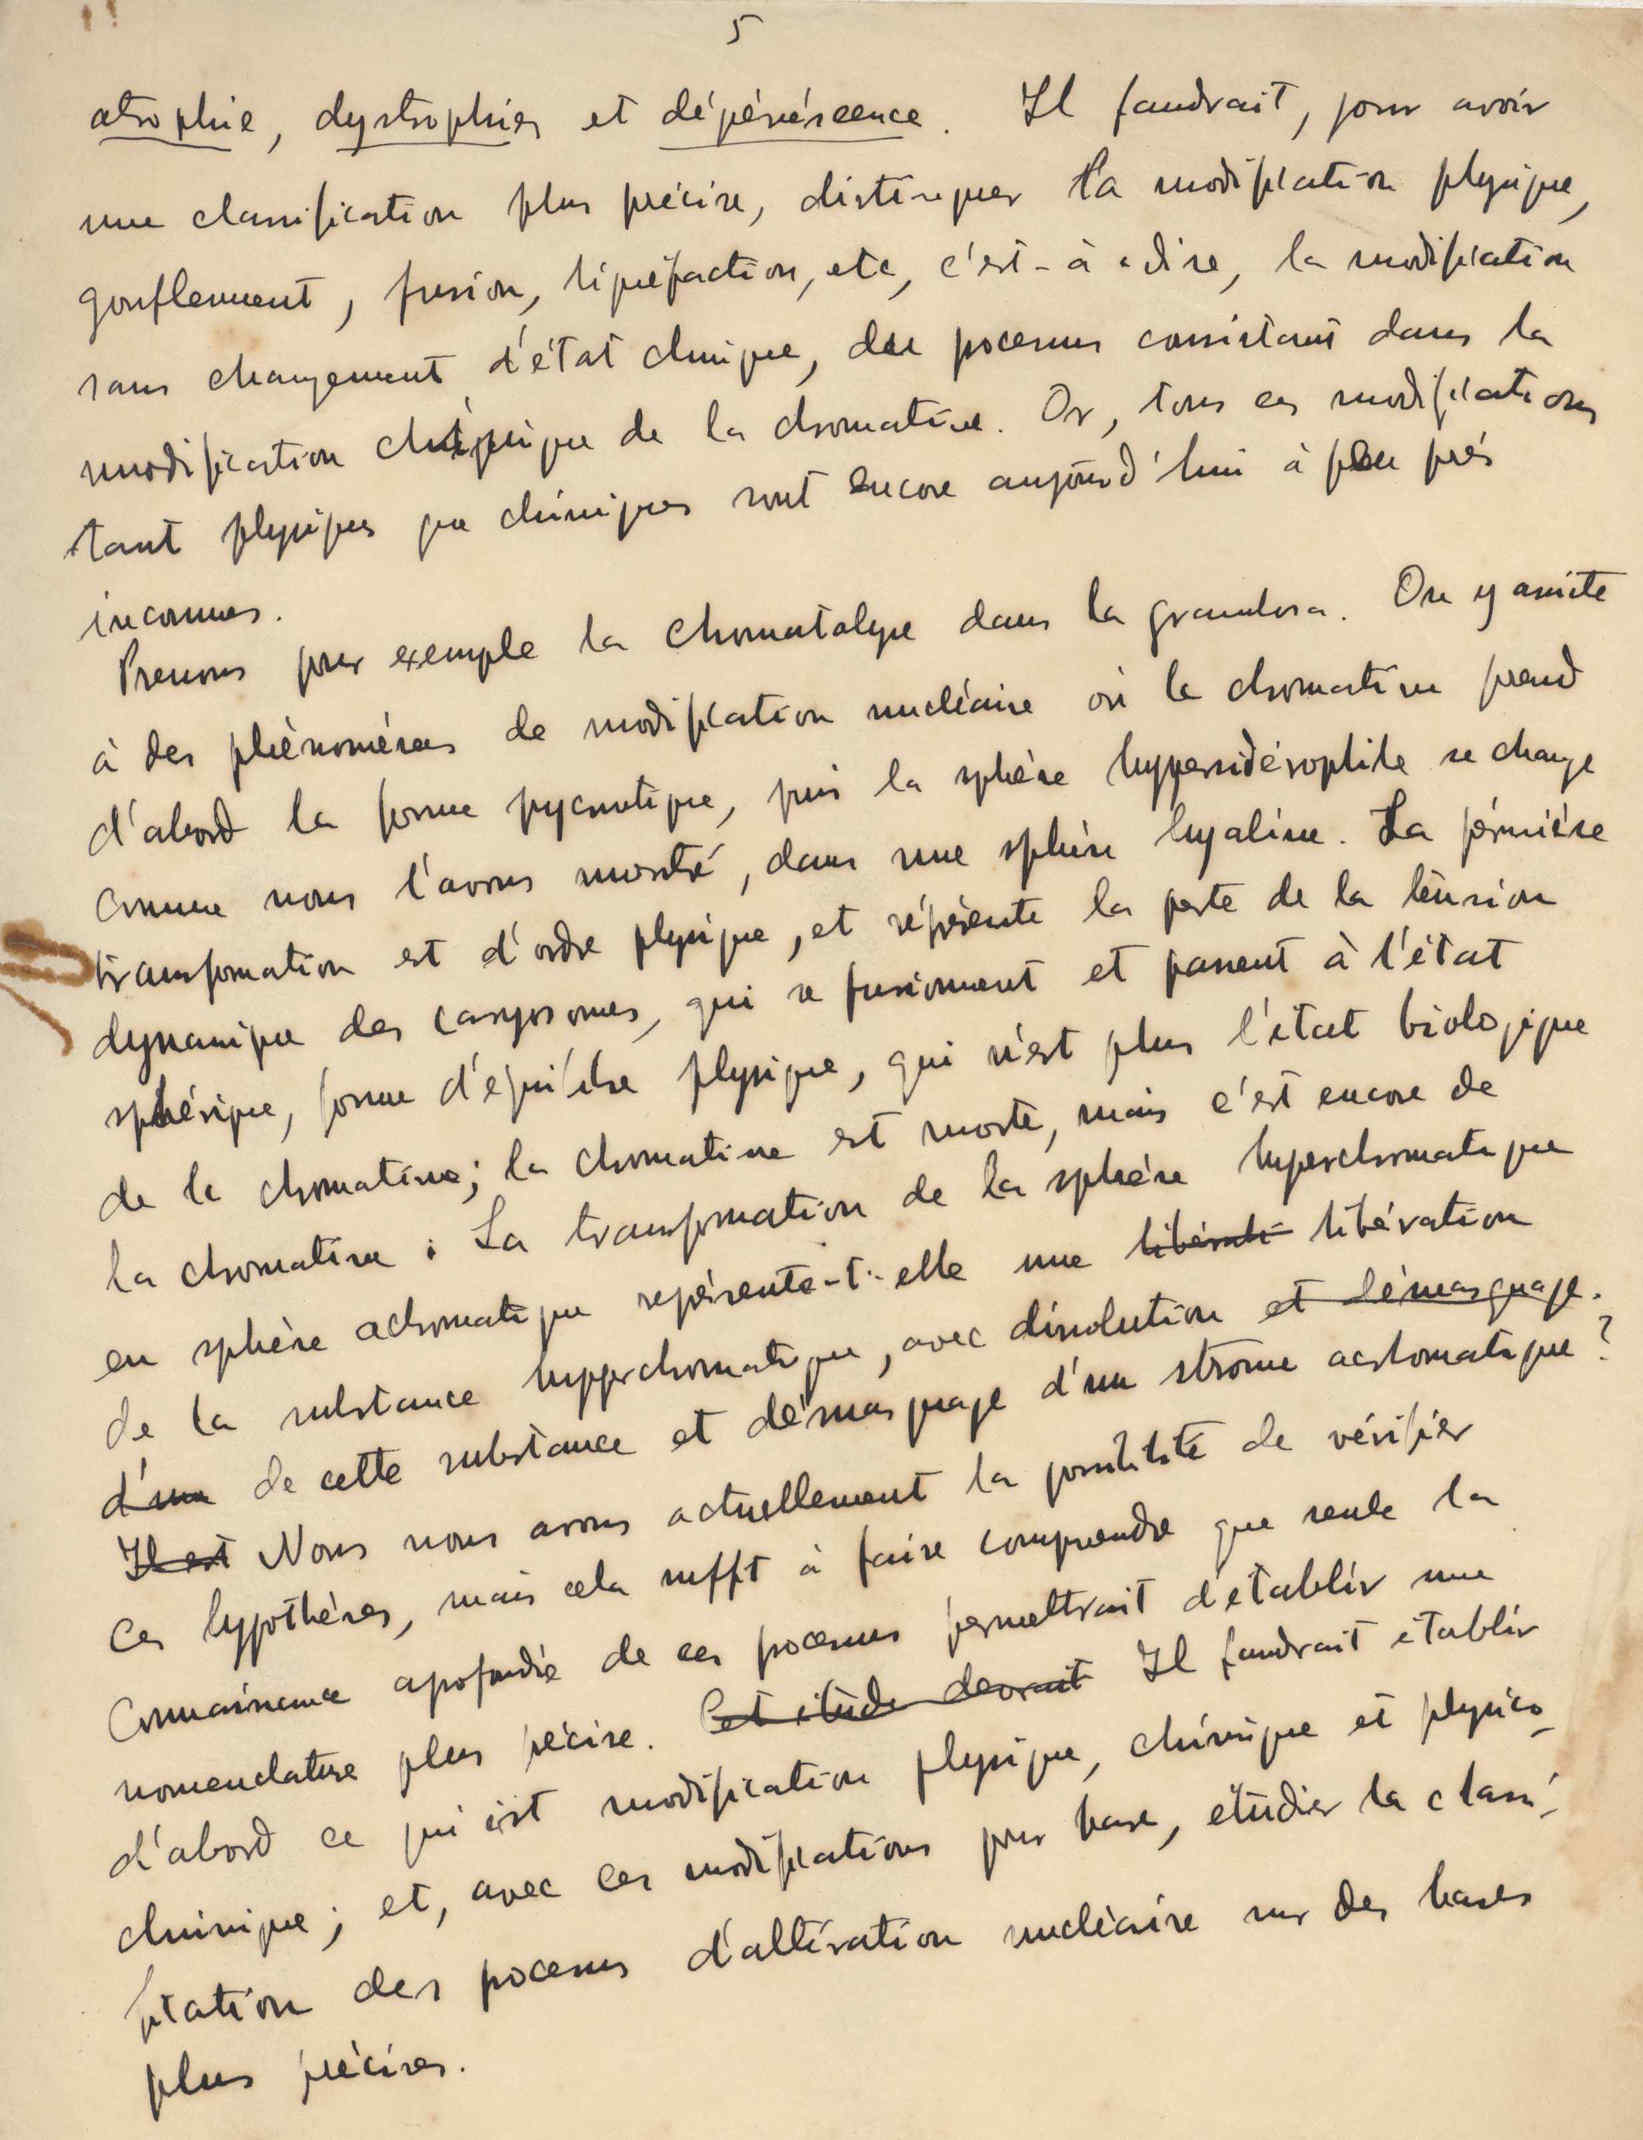 5
atrophie, dystrophies et dégénérescence. Il faudrait, pour avoir
une classification plus précise, distinguer la modification physique,
gonflement, fusion, liquéfaction, etc, c'est-à-dire, la modification
sans changement d'état chimique, des processus consistant dans la
modification chimique de la chromatine. Or, tous ces modifications
tant physiques que chimiques sont encore aujourd'hui à peu près
inconnues.
Prenons pour exemple la chromatolyse dans la granulosa. On y assiste
à des phénomènes de modification nucléaire où la chromatine prend
d'abord la forme pycnotique, puis la sphère hypersidérophile se change
comme nous l'avons montré, dans une sphère hyaline. La première
transformation est d'ordre physique, et représente la perte de la tension
dynamique des caryosomes, qui se fusionnent et passent à l'état
sphérique, forme d'équilibre physique, qui n'est plus l'état biologique
de la chromatine; la chromatine est morte, mais c'est encore de
la chromatine. La transformation de la sphère hyperchromatique
en sphère achromatique représente-t-elle une libérati libération
de la substance hyperchromatique, avec dissolution et démasquage.
d'une de cette substance et démasquage d'un strome acromatique?
Il est Nous nous avons actuellement la possibilité de vérifier
ces hypothèses, mais cela suffit à faire comprendre que seule la
connaissance aprofondie de ces processus permettrait d'etablir une
nomenclature plus précise. Cet etude devrait Il faudrait etablir
d'abord ce qui est modification physique, chimique et physico-
chimique; et, avec ces modifications pour base, etudier la classi-
fication des processus d'altération nucléaire sur des bases
plus précises.